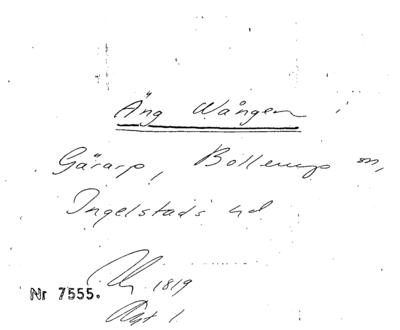 Äng Wången i
Gärarp, Bollerup sn,
Ingelstads hd
1819
Nr 7555.
Akt 1.